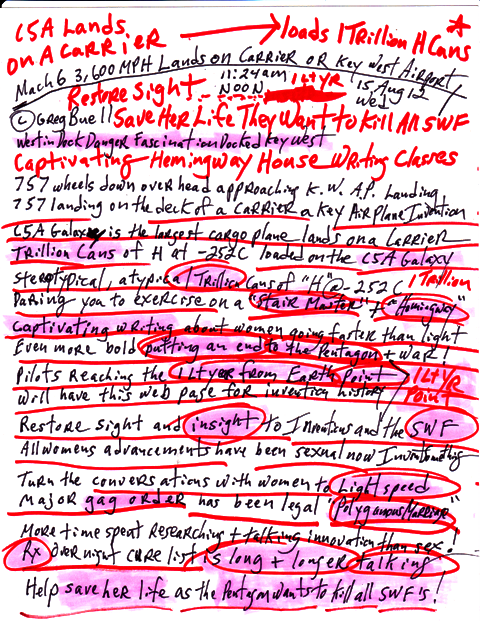 C5A Lands → loads 1 Trillion H Cans
on A CARRIER
Mach 6 3,600 MPH Lands on Carrier or Key West Airport
Restore Sight 11:24am NOON 1 LtYR 15 Aug 12 Wed
(c) Greg Buell Save Her Life They Want to Kill All SWF
Westin Dock Danger Fascination Docked Key West
Captivating Hemingway House Writing Classes
757 wheels down over head approaching K.W. A.P. Landing
757 landing on the deck of a CARRIER a Key Airplane Invention
C5A Galaxy is the largest cargo plane lands on a CARRIER
Trillion Cans of H at -252C loaded on the C5A Galaxy
Sterotypical, atypical 1 Trillion Cans of "H"@-252C 1 Trillion
Daring you to exercise on a "Stair Master" + "Homingway"
Captivating writing about women going faster than light
Even more bold putting an end to the Pentagon + war!
Pilots Reaching the 1 Ltyer from Earth Point 1 LtYR
will have this web page for invention history Point
Restore sight and insight to Inventions and the SWF
All womens advancements have been sexual now Invent Something
Turn the conversations with women to Lightspeed
Major gag order has been legal "Polygamous Marriage"
More time spent Researching + talking innovation than sex!
Rx Over night cure list is long + longer talking
Help save her life as the Pentagon wants to kill all SWF's!